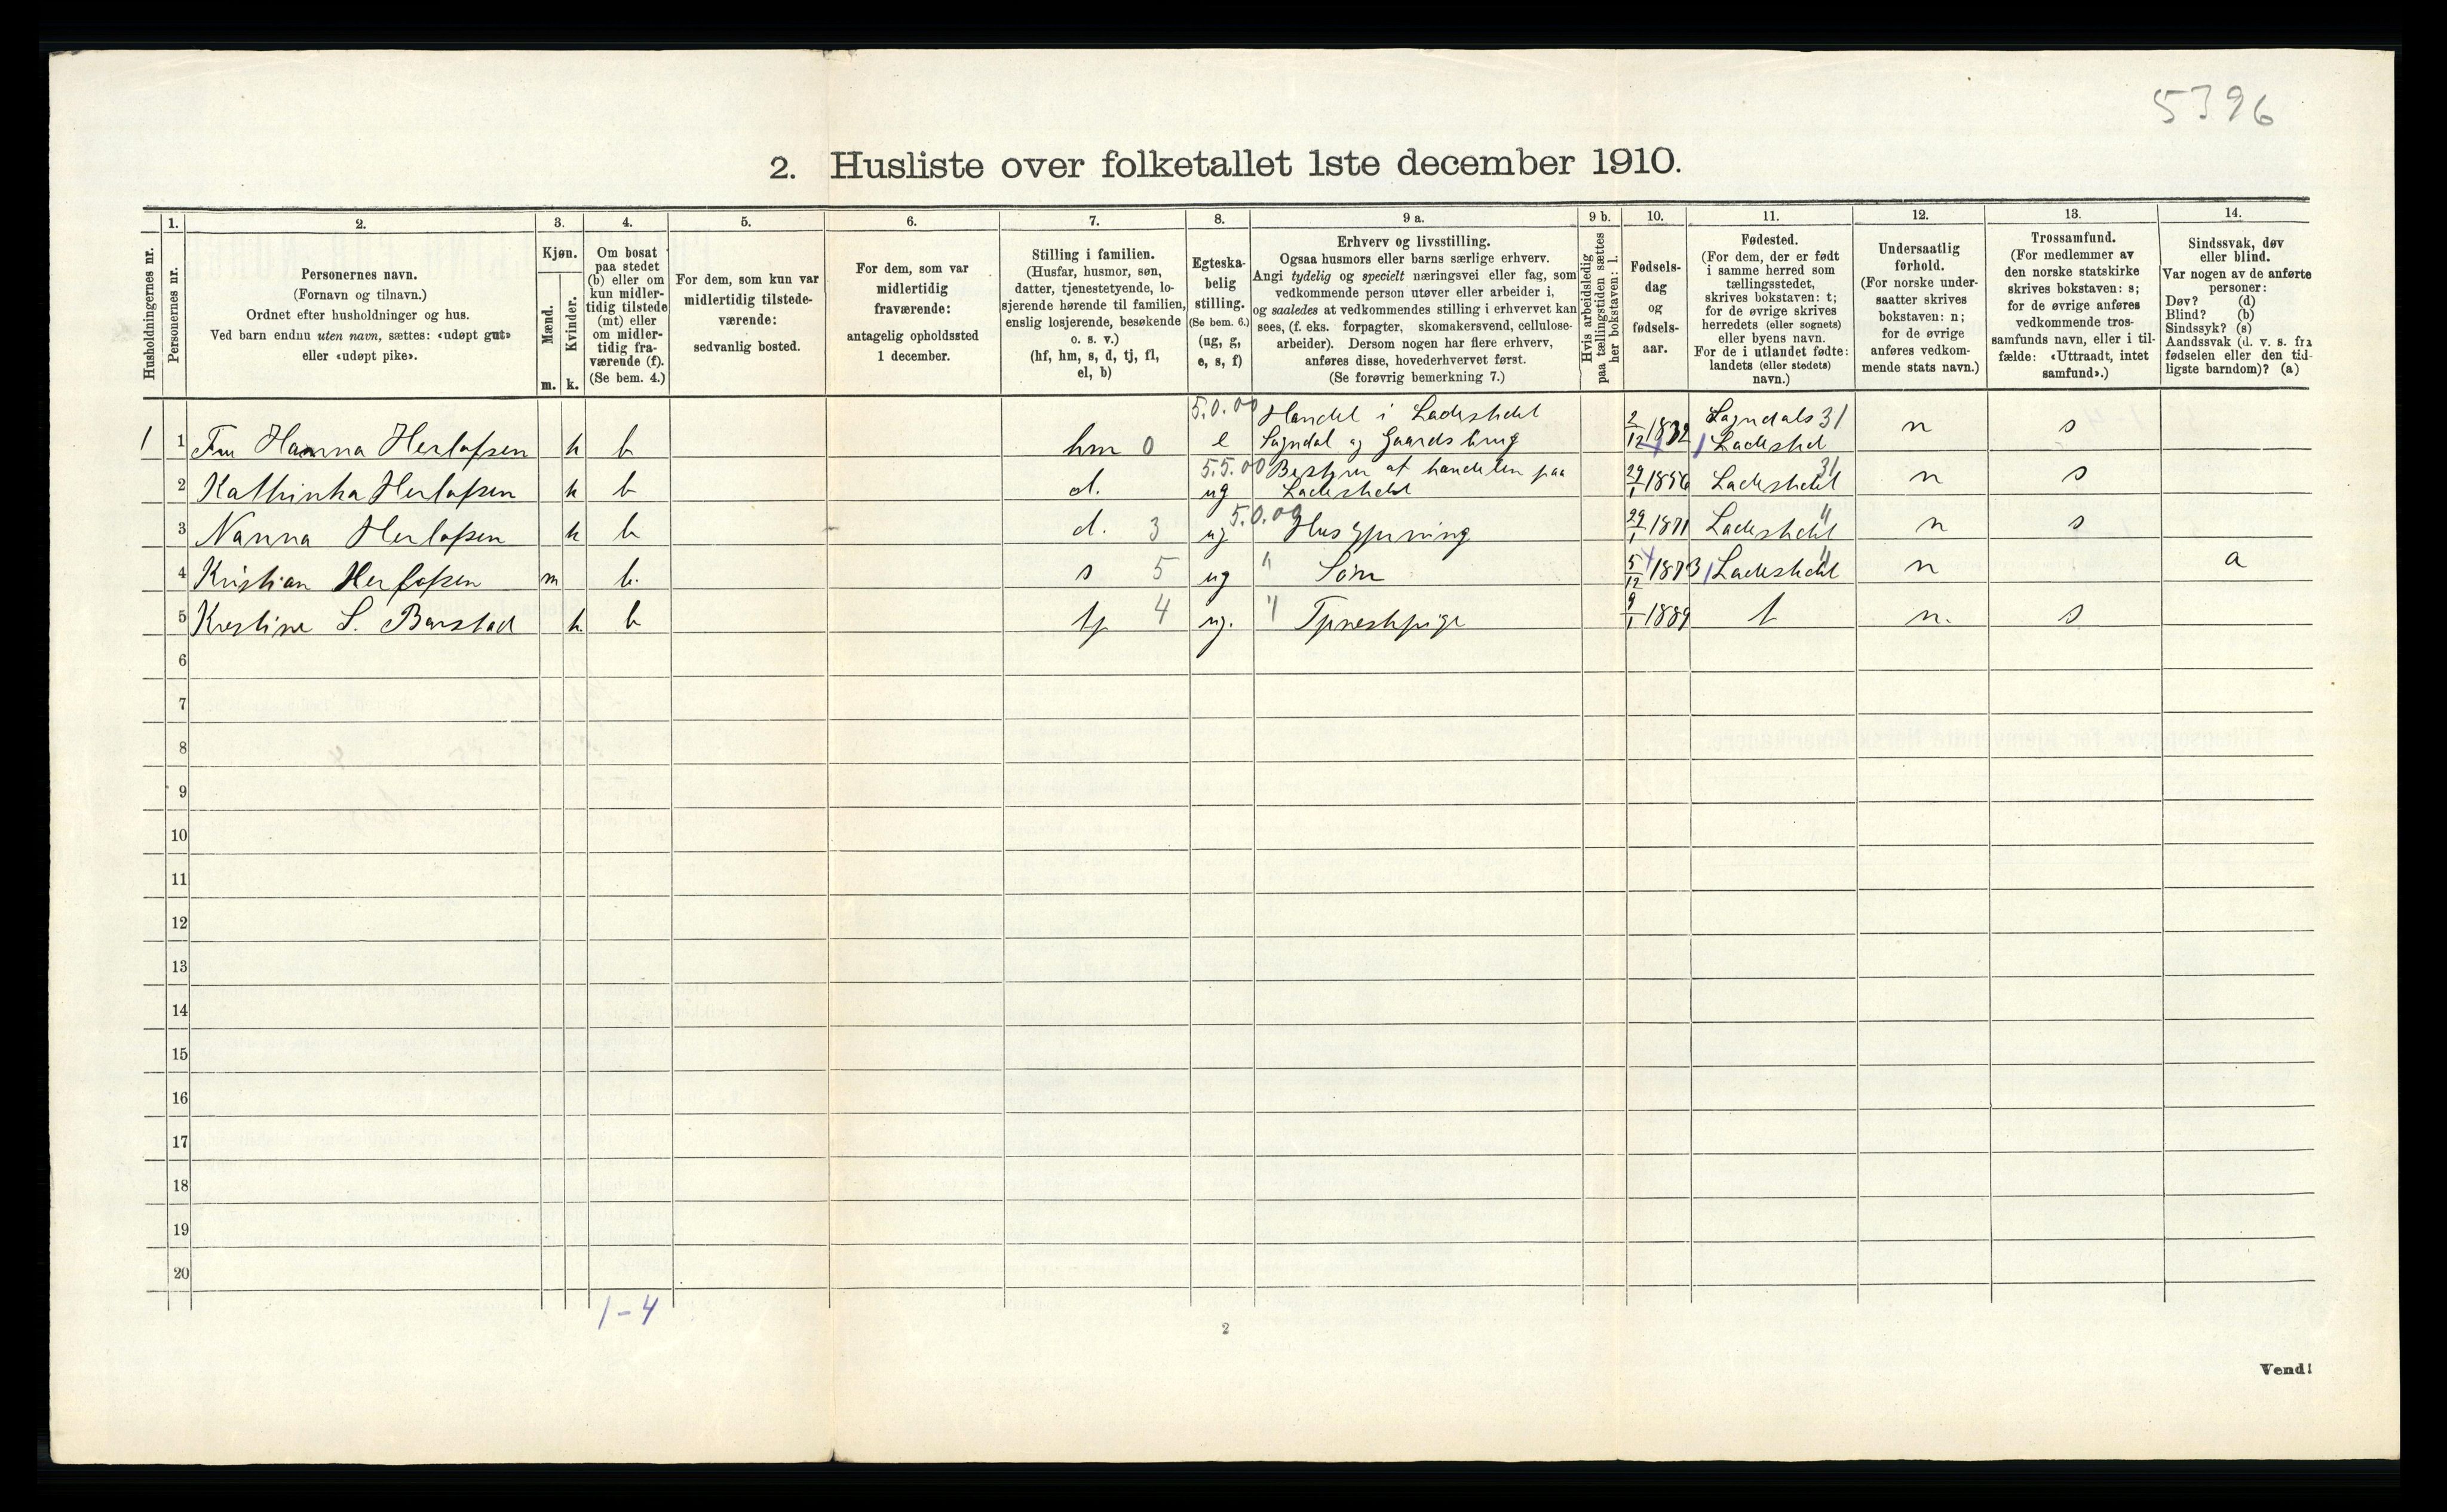 5396
2. Husliste over folketallet 1ste december 1910.
Husholdningernes nr.
1.
Personernes nr.
2.
Personernes navn.
(Fornavn og tilnavn.)
Ordnet efter husholdninger og hus.
Ved barn endnu uten navn, sættes: «udøpt gut»
eller «udøpt pike».
3.
Kjøn.
Mænd.
Kvinder.
m. k.
4.
Om bosat
paa stedet
(b) eller om
kun midler-
tidig tilstede
(mt) eller
om midler-
tidig fra-
værende (f).
(Se bem. 4.)
5.
For dem, som kun var
midlertidig tilstede-
værende:
sedvanlig bosted.
6.
For dem, som var
midlertidig
fraværende:
antagelig opholdssted
1 december.
7.
Stilling i familien.
(Husfar, husmor, søn,
datter, tjenestetyende, lo-
sjerende hørende til familien,
enslig losjerende, besøkende
o. s. v.)
(hf, hm, s, d, tj, fl,
el, b)
8.
Egteska-
belig
stilling.
(Se bem. 6.)
(ug, g,
e, s, f)
9 a.
Erhverv og livsstilling.
Ogsaa husmors eller barns særlige erhverv.
Angi tydelig og specielt næringsvei eller fag, som
vedkommende person utøver eller arbeider i,
og saaledes at vedkommendes stilling i erhvervet kan
sees, (f. eks. forpagter, skomakersvend, cellulose-
arbeider). Dersom nogen har flere erhverv,
anføres disse, hovederhvervet først.
(Se forøvrig bemerkning 7.)
9 b.
Hvis arbeidsledig
paa tællingstiden sættes
her bokstaven: l.
10.
Fødsels-
dag
og
fødsels-
aar.
11.
Fødested.
(For dem, der er født
i samme herred som
tællingsstedet,
skrives bokstaven: t;
for de øvrige skrives
herredets (eller sognets)
eller byens navn.
For de i utlandet fødte:
landets (eller stedets)
navn.)
12.
Undersaatlig
forhold.
(For norske under-
saatter skrives
bokstaven: n;
for de øvrige
anføres vedkom-
mende stats navn.)
13.
Trossamfund.
(For medlemmer av
den norske statskirke
skrives bokstaven: s;
for de øvrige anføres
vedkommende tros-
samfunds navn, eller i til-
fælde: «Uttraadt, intet
samfund».)
14.
Sindssvak, døv
eller blind.
Var nogen av de anførte
personer:
Døv? (d)
Blind? (b)
Sindssyk? (s)
Aandssvak (d. v. s. fra
fødselen eller den tid-
ligste barndom)? (a)
5.0.00 Handel i Ladested Sogndals 31
1 1 Fru Hanna Herlofsen k b hm 0 e Sogndal og Gaardsbrug 2/12 1832 Ladested n s
5.5.00 Bestyrer af handelen paa 31
2 Kathinka Herlofsen k b d. ug Ladestedet 29/1 1856 Ladestedet n s
5.0.00
3 Nanna Herlofsen k b d. 3 ug Husgjerning 29/1 1871 Ladestedet " n s
4 Kristian Herlofsen m b. s 5 ug " Søn 5/12 1873 Ladestedet " n a
5 Krestine S. Barstad k. b tj 4 ug. " Tjenestpige 9/1 1889 t n. s
6
7
8
9
10
11
12
13
14
15
16
17
18
19
20
1-4
2
Vend!